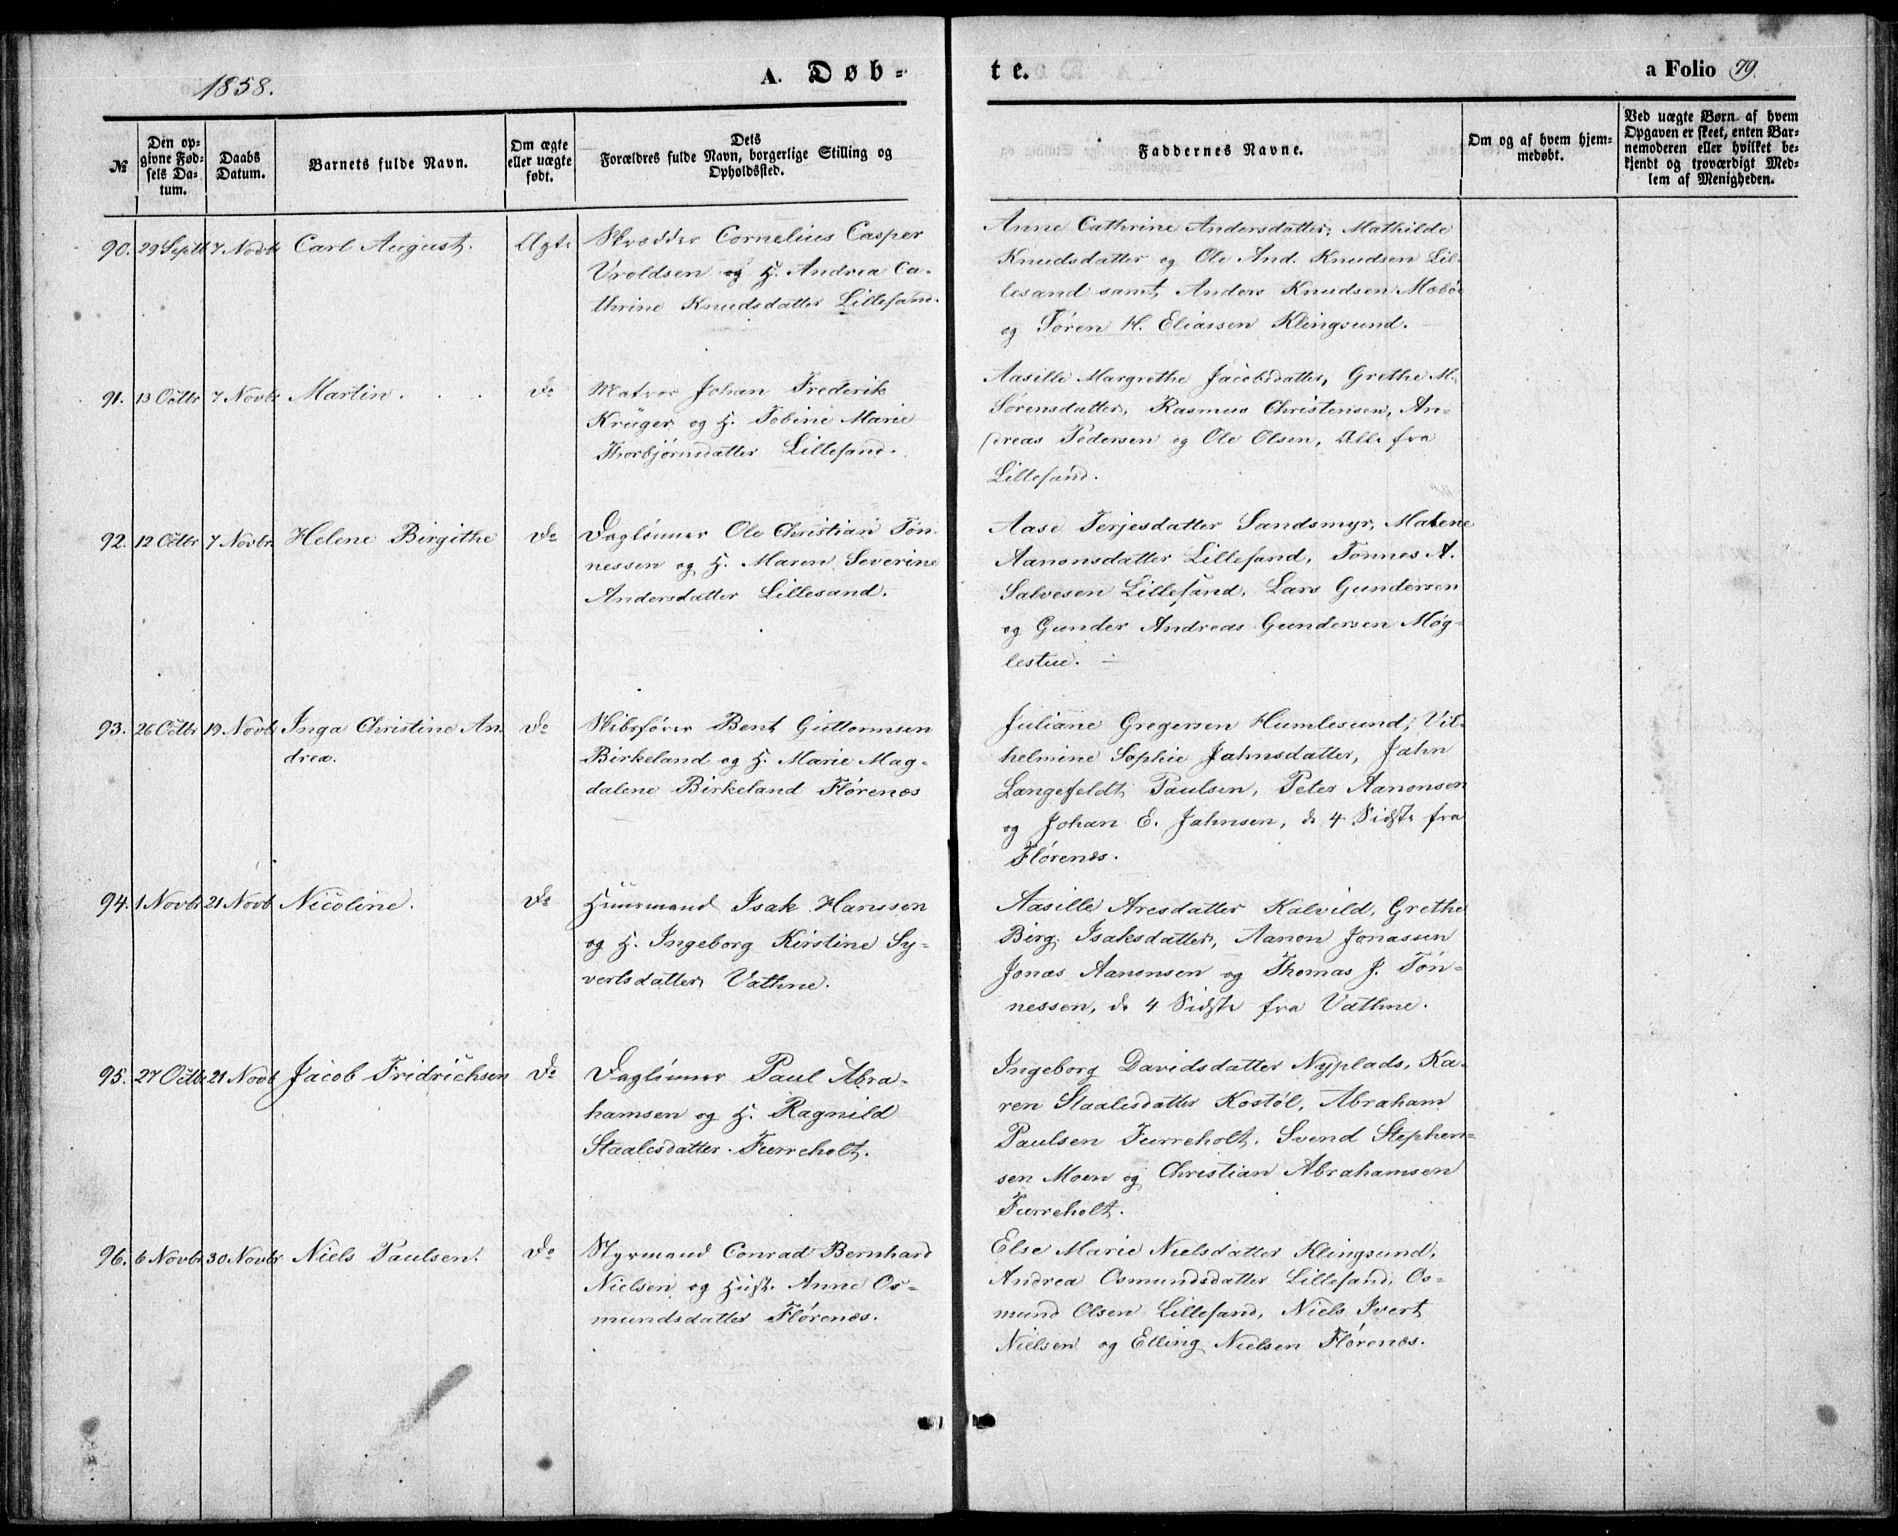 1858.
A. Døb-
te.
a Folio 79.
№
Den op-
givne Fød-
sels Da-
tum.
Daabs
Datum.
Barnets fulde Navn.
Om ægte
eller uægte
født.
Dets
Forældres fulde Navn, borgerlige Stilling og
Opholdssted.
Faddernes Navne.
Om og af hvem hjem-
medøbt.
Ved uægte Børn af hvem
Opgaven er skeet, enten Bar-
nemoderen eller hvilket be-
kjendt og troværdigt Med-
lem af Menigheden.
90. 29 Septb 7 Novbr Carl August. Ægte
Skrædder Cornelius Casper
Uroldsen og H. Andrea Ca-
thrine Knudsdatter Lillesand.
Anne Cathrine Andersdatter, Mathilde
Knudsdatter og Ole And. Knudsen Lil-
lesand samt Anders Knudsen
og Søren H. Eliassen Klingsund.
91. 13 Octbr 7 Novbr Martin. Do
Matros Johan Frederik
Krüger og H. Tobine Marie
Thorbjørnsdatter Lillesand.
Aasille Margrethe Jacobsdatter, Grethe M.
Sørensdatter, Rasmus Christensen, An-
dreas Pedersen og Ole Olsen, Alle fra
Lillesand.
92. 12 Octbr 7 Novbr Helene Birgithe Do
Dagleinner Ole Christian Tøn-
nessen og H. Maren Severine
Andersdatter Lillesand.
Aase Terjesdatter Sandsmyr, Malene
Aanonsdatter Lillesand, Tønnes A.
Salvesen Lillesand, Lars Gundersen
og Gunder Andreas Gundersen Møg-
lestue.
93. 26 Octbr 19 Novbr Inga Christine An-
drea. Do
Skibsfører Bent Guttormsen
Birkeland og H. Marie Mag-
dalene Birkeland Flørenes
Juliane Gregersen Humlesund, Vil-
helmine Sophie Jahnsdatter, Jahn
Langefeldt Paulsen, Peter Aanonsen
og Johan E. Jahnsen, de 4 Sidste fra
Flørenes.
94. 1 Novbr 21 Novb Nicoline. Do
Huusmand Isak Hanssen
og H. Ingeborg Kirstine Sy-
vertsdatter Vathne.
Aasille Aresdatter Kalvild, Grethe
Berg. Isaksdatter, Aanon Jonassen
Jonas Aanonsen og Thomas J. Tøn-
nessen, de 4 Sidste fra Vathne.
95. 27 Octbr 21 Novb Jacob Fridrichsen Do
Dagleinner Paul Abra-
hamsen og H. Ragnild
Staalesdatter Furreholt.
Ingeborg Davidsdatter Nyplads, Ka-
ren Staalesdatter Kostøl, Abraham
Paulsen Furreholt, Svend Stephen-
sen Moen og Christian Abrahamsen
Furreholt.
96. 6 Novbr 30 Novbr Niels Paulsen. Do
Styrmand Conrad Bernhard
Nielsen og Hust. Anne Os-
mundsdatter Flørenes.
Else Marie Nielsdatter Klingsund,
Andrea Osmundsdatter Lillesand, Os-
mund Olsen Lillesand, Niels Ivert
Nielsen og Elling Nielsen Flørenes.